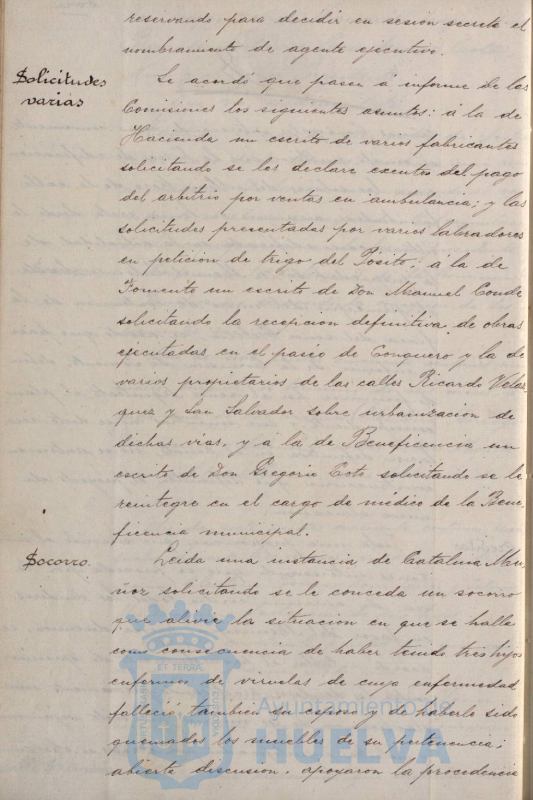 reservando para decidir en sesión secreta el
nombramiento de agente ejecutivo.
Solicitudes
varias
Se acordó que pasen á informe de las
Comisiones los siguientes asuntos: á la de
Hacienda un escrito de varios fabricantes
solicitando se les declare exentos del pago
del arbitrio por ventas en ambulancia; y las
solicitudes presentadas por varios labradores
en petición de trigo del Pósito; á la de
Fomento un escrito de Don Manuel Conde
solicitando la recepcion definitiva de obras
ejecutadas en el paseo de Conquero y la de
varios propietarios de las calles Ricardo Velaz
quez y San Salvador sobre urbanizacion de
dichas vias, y á la de Beneficencia un
escrito de Don Gregorio solicitando se le
reintegre en el cargo de médico de la Bene
ficencia municipal.
Socorro.
Leida una instancia de Catalina Mu
ñoz solicitando se le conceda un socorro
que alivie la situacion en que se halla
como consecuencia de haber tenido tres hijos
enfermos de viruelas de cuya enfermedad
falleció tambien su esposo y de haberle sido
quemados los muebles de su pertenencia;
abierta discusion, apoyaron la procedencia
Ayuntamiento de
HUELVA